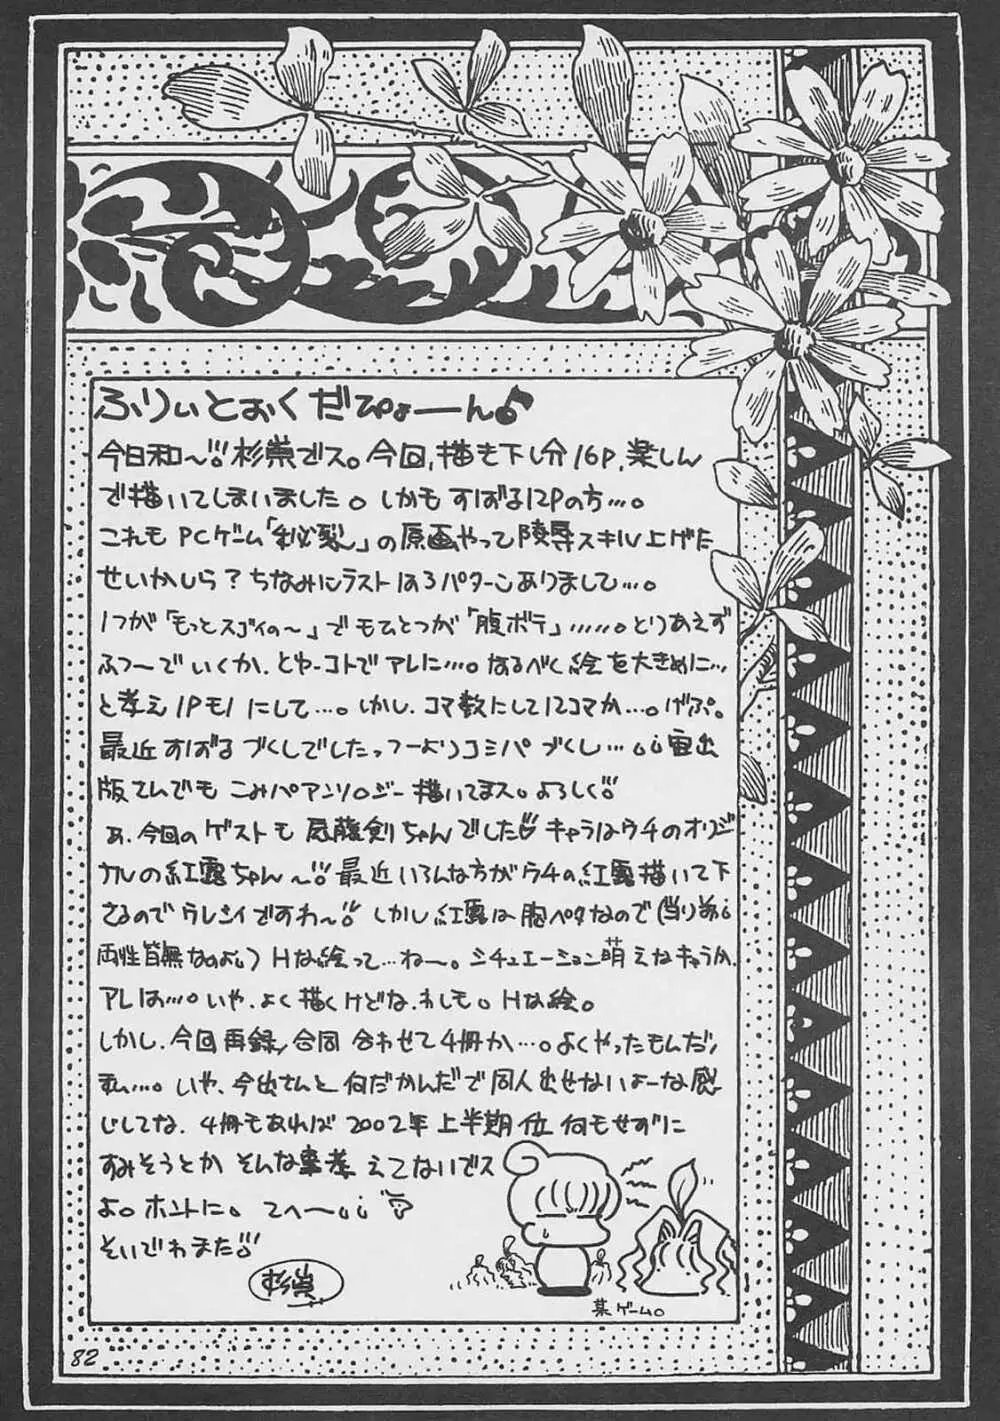 ふりぃとぉくだぴょーん♪
今日和〜!! 杉崇でス。今回、描き下し分16P、楽しん
で描いてしまいました。しかも すばる12Pの方…。
これも PCゲーム「秘裂」の原画やって陵辱スキル上げた
せいかしら？ちなみにラストは3パターンありまして…。
1つが「もっとスゴイの〜」でもひとつが「腹ボテ」……。とりあえず
ふつーでいくか、とゆーコトでアレに…。なるべく絵を大きめに…
と考え1Pモ1にして…。しかし、コマ数にして12コマか…。げぷ。
最近 すばるづくしでしたっつーよりコミパづくし… 宙出
版さんでも こみパアンソロジー描いてまス。よろしく!!
あ、今回のゲストも 尾藤剣ちゃんでした キャラはウチのオリジ
ナルの紅露ちゃん〜!! 最近いろんな方がウチの紅露描いて下
さるのでウレシイですわ〜!! しかし紅露は胸ペタなので（当り前
両性皆無なのよ）Hな絵って…ね〜。シチュエーション萌えなキャラか、
アレは…。いや、よく描くけどな、わしも。Hな絵。
しかし、今回再録、合同 合わせて4冊か…。よくやったもんだ、
私…。いや、今出さんと何だかんだで同人出せないよーな感
じしてな、4冊もあれば 2002年上半期位 何もせずに
すみそうとか そんな事考えてないでス
よ。ホントに。てへ〜
そいでわまた!!
杉崇
某ゲーム。
82